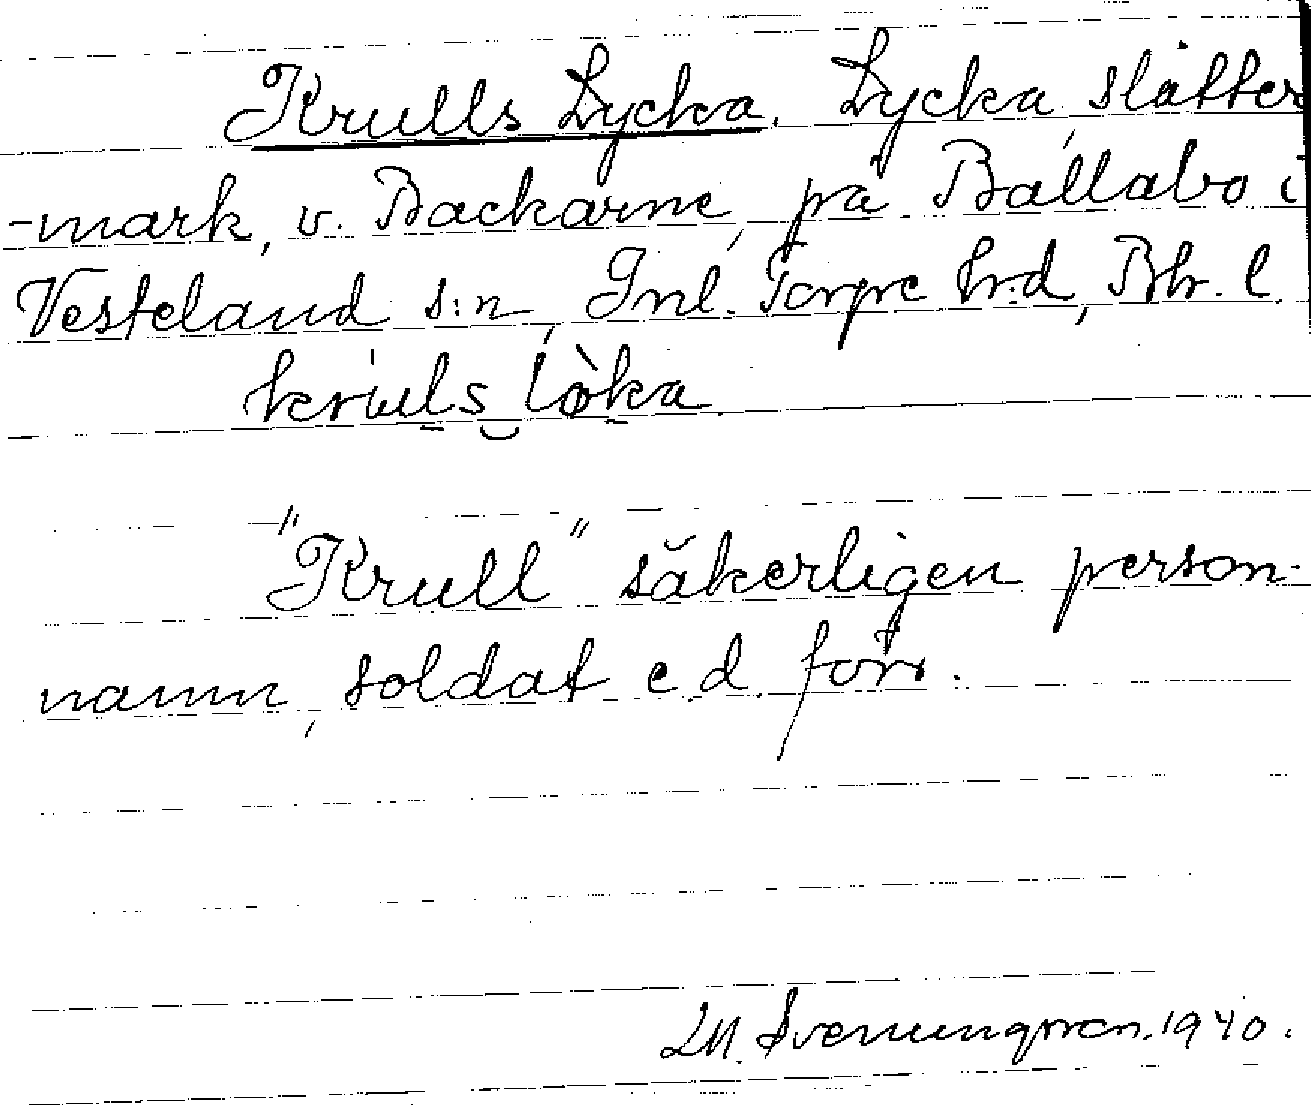 Krulls Lycka. Lycka, slåtter
-mark, v. Backarne, på Ballabo i
Vesteland s:n, Inl. Torpe hrd, Bhr. l.
kruls lòka
"Krull" säkerligen person-
namn, soldat e d. förr.
M. Svenungsson. 1940.